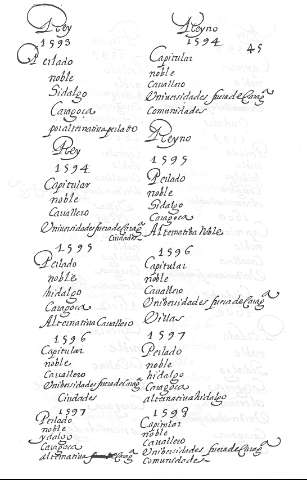 Rey
1593
Perlado
noble
Hidalgo
Caragoça
Rey
1594
Capitular
noble
Cauallero
Uniuersidades fuera de Carag.ª
Ciudades
1595
Perlado
noble
hidalgo
Caragoça
Alternatiua Cauallero
1596
Capitular
noble
Cauallero
Uniuersidades fuera de Carag.ª
Ciudades
1597
Perlado
noble
ydalgo
Caragoça
alternatiua Carag.ª
Reyno
1594
45
Capitular
noble
Cauallero
Uniuersidades fuera de Carag.ª
Comunidades
Reyno
1595
Perlado
noble
Hidalgo
Caragoça
Alternatiua Noble
1596
Capitular
noble
Cauallero
Uniuersidades fuera de Carag.ª
Villas
1597
Perlado
noble
hidalgo
Caragoça
alternatiua hidalgo
1598
Capitular
noble
Cauallero
Uniuersidades fuera de Carag.ª
Comunidades